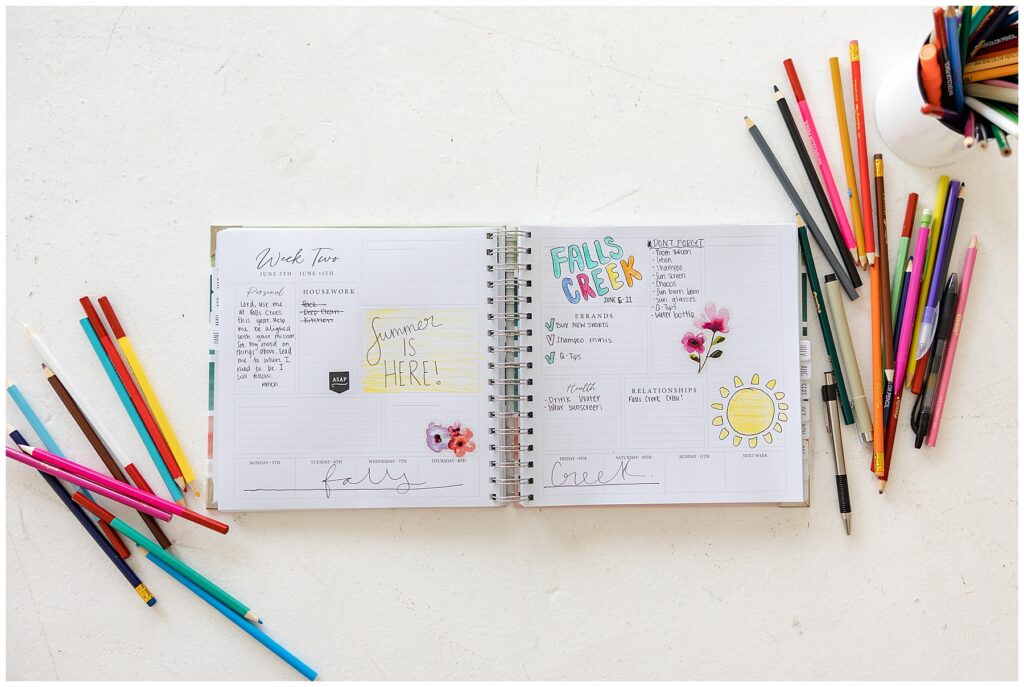 Week Two
JUNE 5TH - JUNE 11TH
Personal
Lord, use me
at Falls Creek
this year. Help
me be aligned
with your mission.
Set my mind on
"things" above. Lead
me to where I
need to be. I
will follow.
Amen.
HOUSEWORK
Deep Clean
Kitchen
Summer
IS
HERE!
ASAP
MONDAY · 5TH
TUESDAY · 6TH
WEDNESDAY · 7TH
THURSDAY · 8TH
falls
FALLS
CREEK
JUNE 5-11
DON'T FORGET
- Lotion
- Shampoo
- Sun screen
- Chacos
- Sun burn lotion
- sun glasses
- Q-Tips
- Water bottle
ERRANDS
Buy new shorts
Shampoo minis
Q-Tips
Health
- Drink Water
- Wear sunscreen
RELATIONSHIPS
Falls Creek Crew!
FRIDAY · 9TH
SATURDAY · 10TH
SUNDAY · 11TH
NEXT WEEK
Creek